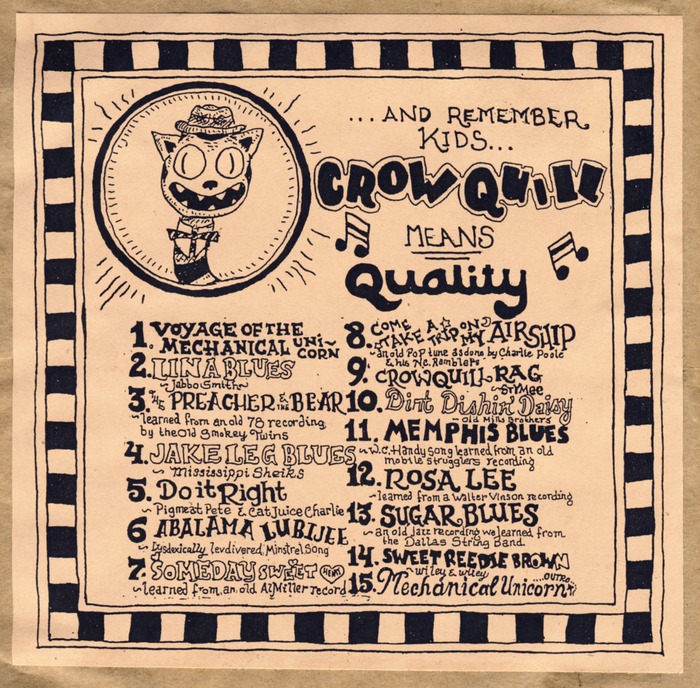 ...AND REMEMBER
KIDS...
CROW QUILL
MEANS
Quality
1. VOYAGE OF THE
MECHANICAL UNI-
CORN
2. LINA BLUES
~Jabbo Smith~
3. THE PREACHER & THE BEAR
~learned from an old 78 recording
by the Old Smokey Twins
4. JAKE LEG BLUES
~Mississippi Sheiks
5. Do it Right
~Pigmeat Pete & Catjuice Charlie
6 ABALAMA LUBIJEE
~Lysdexically derived, Minstrel Song
7. SOMEDAY SWEET
~learned from an old Al Miller record
8. COME TAKE A TRIP ON MY AIRSHIP
~an old Pop tune as done by Charlie Poole
& his N.C. Ramblers
9. CROWQUILL RAG
~BY Mee
10. Dirt Dishin' Daisy
~old Mills Brothers
11. MEMPHIS BLUES
~W.C. Handy song learned from an old
mobile strugglers recording
12. ROSA LEE
~learned from a Walter Vinson recording
13. SUGAR BLUES
~an old Jazz recording we learned from
the Dallas String Band
14. SWEET REEDIE BROWN
~wiley & wiley
15. Mechanical Unicorn
...outro